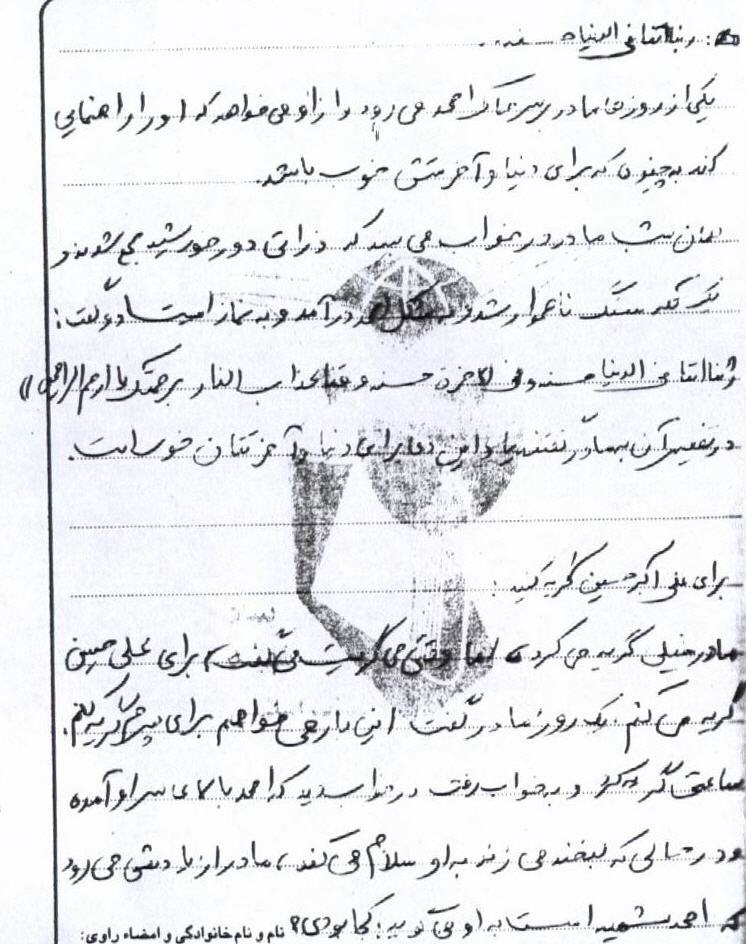 ربنا آتنا فی الدنیا حسنه...
یکی از روزها مادر بر سر خاک احمد می رود و از او می خواهد که او را راهنمایی
کند به چیزی که برای دنیا و آخرتش خوب باشد.
همان شب مادر در خواب می بیند که ذراتی دور خورشید جمع شدند و
یک تکه سنگ ناهموار شد و به شکل احمد در آمد و به نماز ایستاد و گفت:
ربنا اتنا فی الدنیا حسنه و فی الاخرة حسنه و قنا عذاب النار برحمتک یا ارحم الراحمین))
در تفسیر آن به مادر گفتند این دعا برای دنیا و آخرتتان خوب است.
برای علی اکبر حسین گریه کنید:
مادر خیلی گریه می کرد اما وقتی می گریست می گفت برای علی حسین
گریه می کنم. یک روز مادر گفت این بار می خواهم برای پسرم گریه کنم.
ساعتی گریه کرد و به خواب رفت در خواب دید که احمد بالای سر او آمده
و در حالی که لبخند می زند به او سلام می کند، مادر از یادش می رود
که احمد شهید است به او می گوید: کجا بودی؟
نام و نام خانوادگی و امضاء راوی: